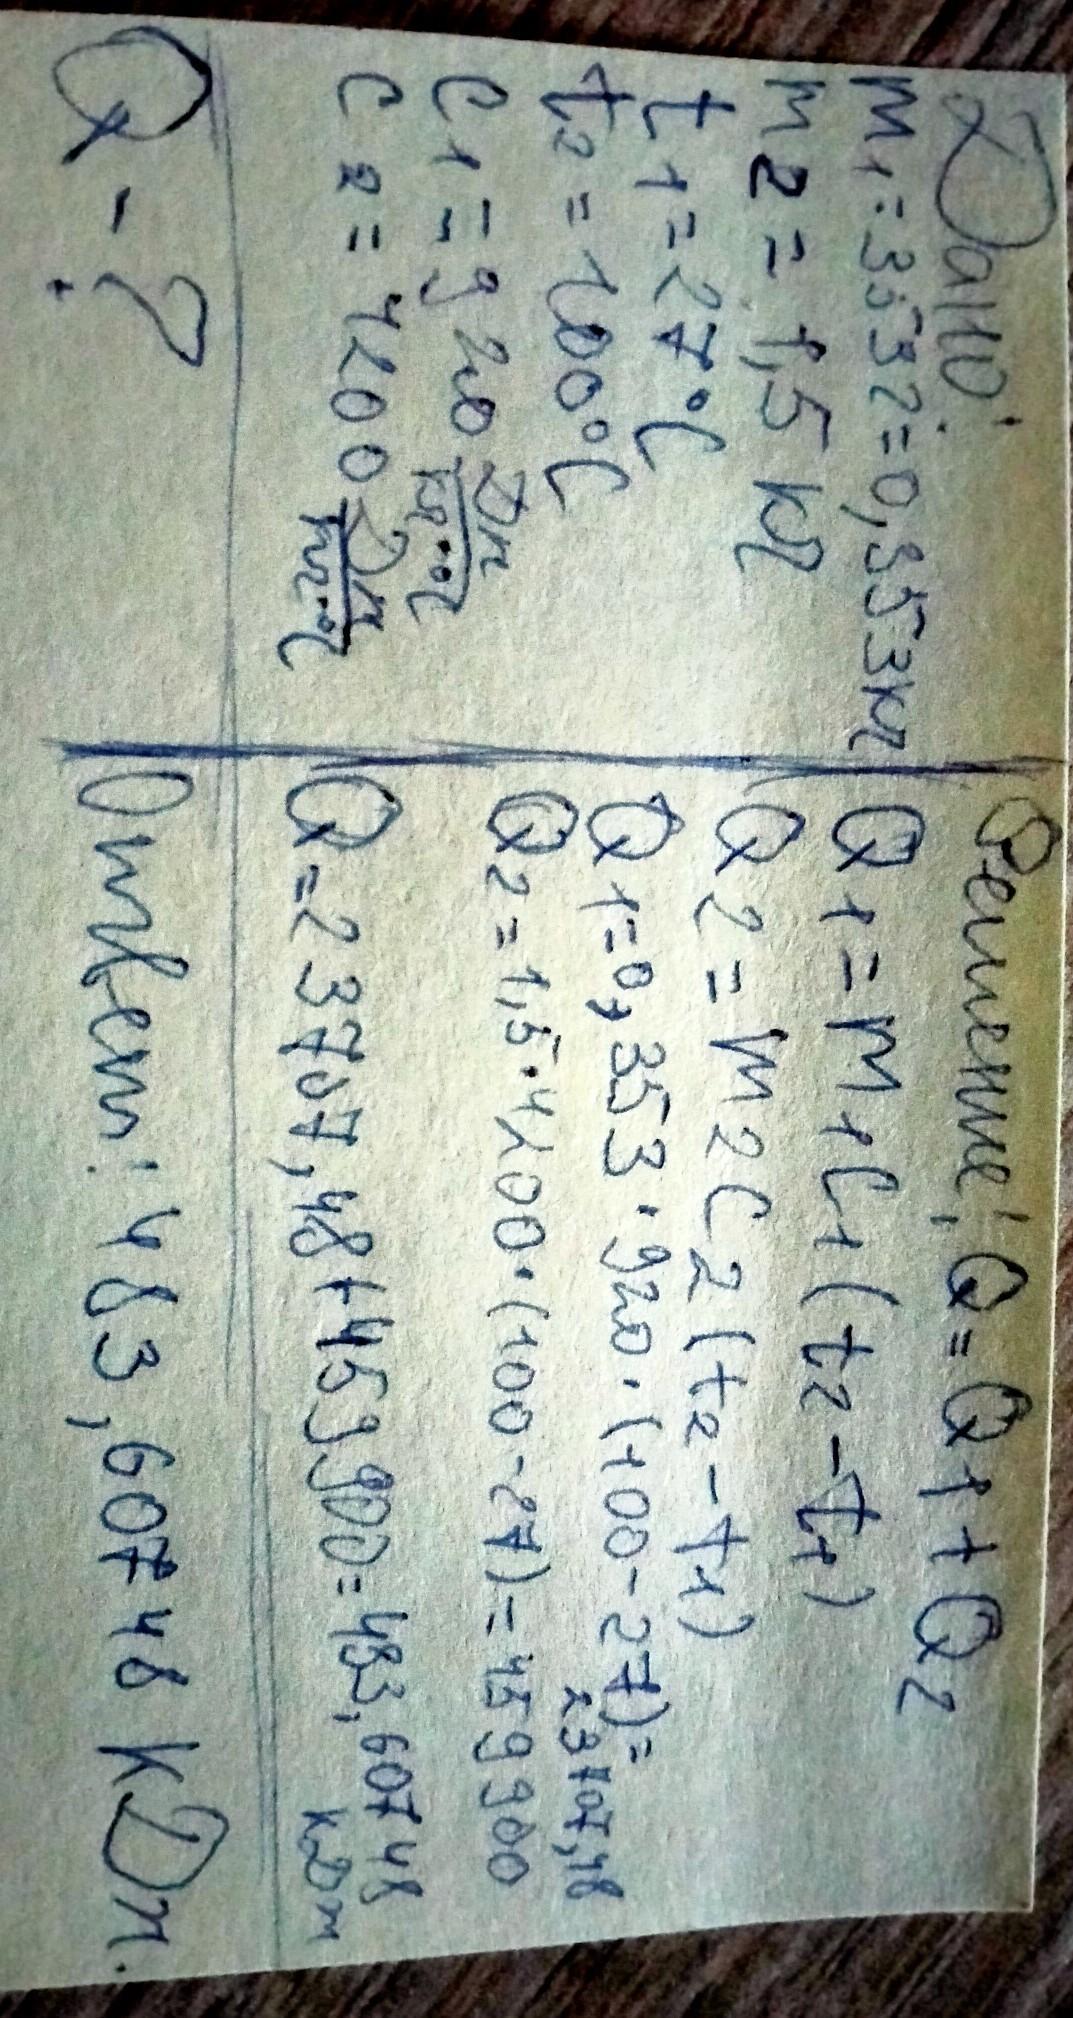 Дано:
m1 = 353г = 0,353кг
m2 = 1,5 кг
t1 = 27°C
t2 = 100°C
C1 = 920 Дж/кг·°C
C2 = 4200 Дж/кг·°C
Q - ?
Решение: Q = Q1 + Q2
Q1 = m1C1(t2 - t1)
Q2 = m2C2(t2 - t1)
Q1 = 0,353·920·(100-27) =
23707,48
Q2 = 1,5·4200·(100-27) = 459900
Q = 23707,48 + 459900 = 483,60748
кДж
Ответ: 483,60748 кДж.